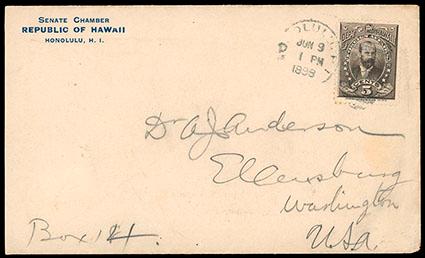 SENATE CHAMBER
REPUBLIC OF HAWAII
HONOLULU, H. I.
HONOLULU
JUN 9
1 PM
1898
5
CENTS
Dr A J Anderson
Ellensburg
Washington
USA.
Box 14.